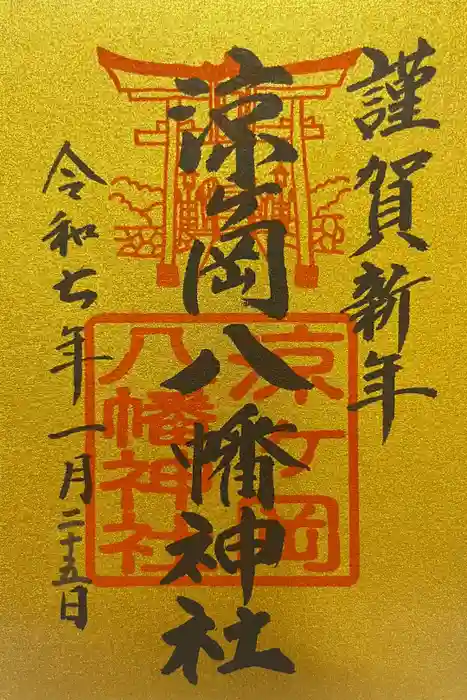 謹賀新年
涼ヶ岡八幡神社
令和七年一月二十五日
涼ヶ岡
八幡神社